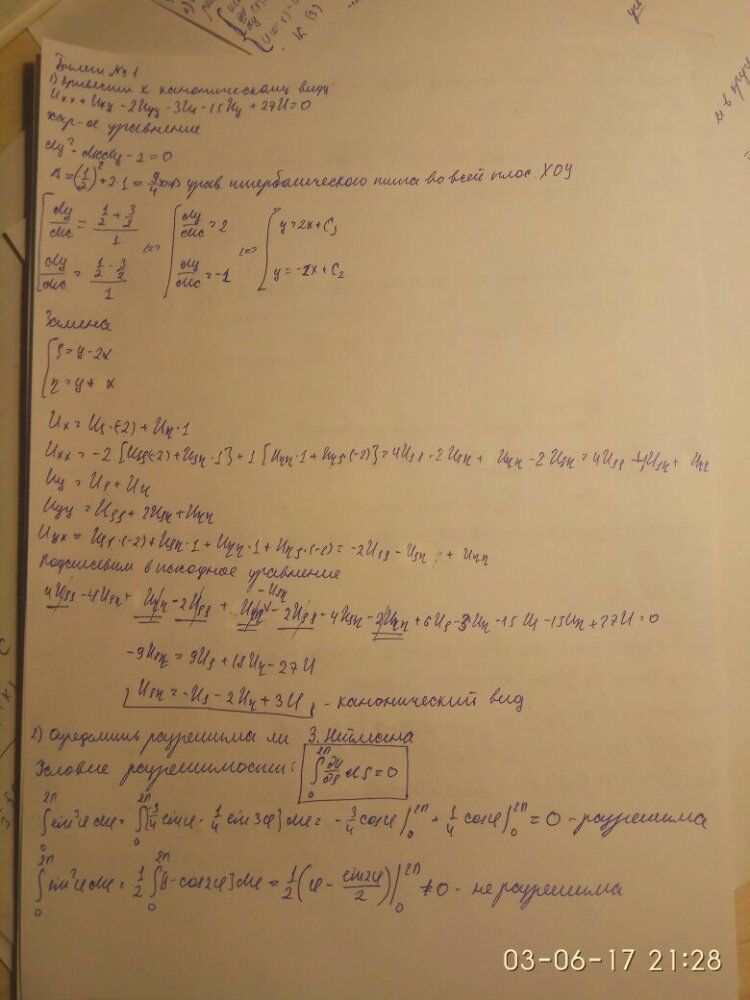 Билет № 1
1) Привести к каноническому виду
Uxx + Uxy - 2Uyy - 3Ux - 15Uy + 27U = 0
Хар-ое уравнение
dy² - dxdy - 2 = 0
Δ = (1/2)² + 2·1 = 9/4 >0 => урав. гиперболического типа во всей плос. XOY
[ dy/dx = (1/2 + 3/2)/1 <=> [ dy/dx = 2 <=> [ y = 2x + C₁
[ dy/dx = (1/2 - 3/2)/1 [ dy/dx = -1 [ y = -1x + C₂
Замена
{ ξ = y - 2x
{ η = y + x
Ux = Uξ·(-2) + Uη·1
Uxx = -2 [Uξξ(-2) + Uξη·1] + 1 [Uηη·1 + Uηξ·(-2)] = 4Uξξ - 2Uξη + Uηη - 2Uξη = 4Uξξ - 4Uξη + Uηη
Uy = Uξ + Uη
Uyy = Uξξ + 2Uξη + Uηη
Uyx = Uξξ·(-2) + Uξη·1 + Uηη·1 + Uηξ·(-2) = -2Uξξ - Uξη + Uηη
Подставим в исходное уравнение
4Uξξ - 4Uξη + Uηη - 2Uξξ - Uξη + Uηη - 2Uξξ - 4Uξη - 2Uηη + 6Uξ - 3Uη - 15Uξ - 15Uη + 27U = 0
-9Uξη = 9Uξ + 18Uη - 27U
Uξη = -Uξ - 2Uη + 3U - канонический вид
2) Определить разрешима ли З. Неймана
Условие разрешимости: ∫₀^2π ∂U/∂ρ dS = 0
∫₀^2π sin³φ dφ = ∫₀^2π [3/4 sinφ - 1/4 sin3φ] dφ = -3/4 cosφ |₀^2π + 1/4 cosφ |₀^2π = 0 - разрешима
∫₀^2π sin²φ dφ = 1/2 ∫₀^2π [1 - cos2φ] dφ = 1/2 (φ - sin2φ/2) |₀^2π ≠ 0 - не разрешима
03-06-17 21:28